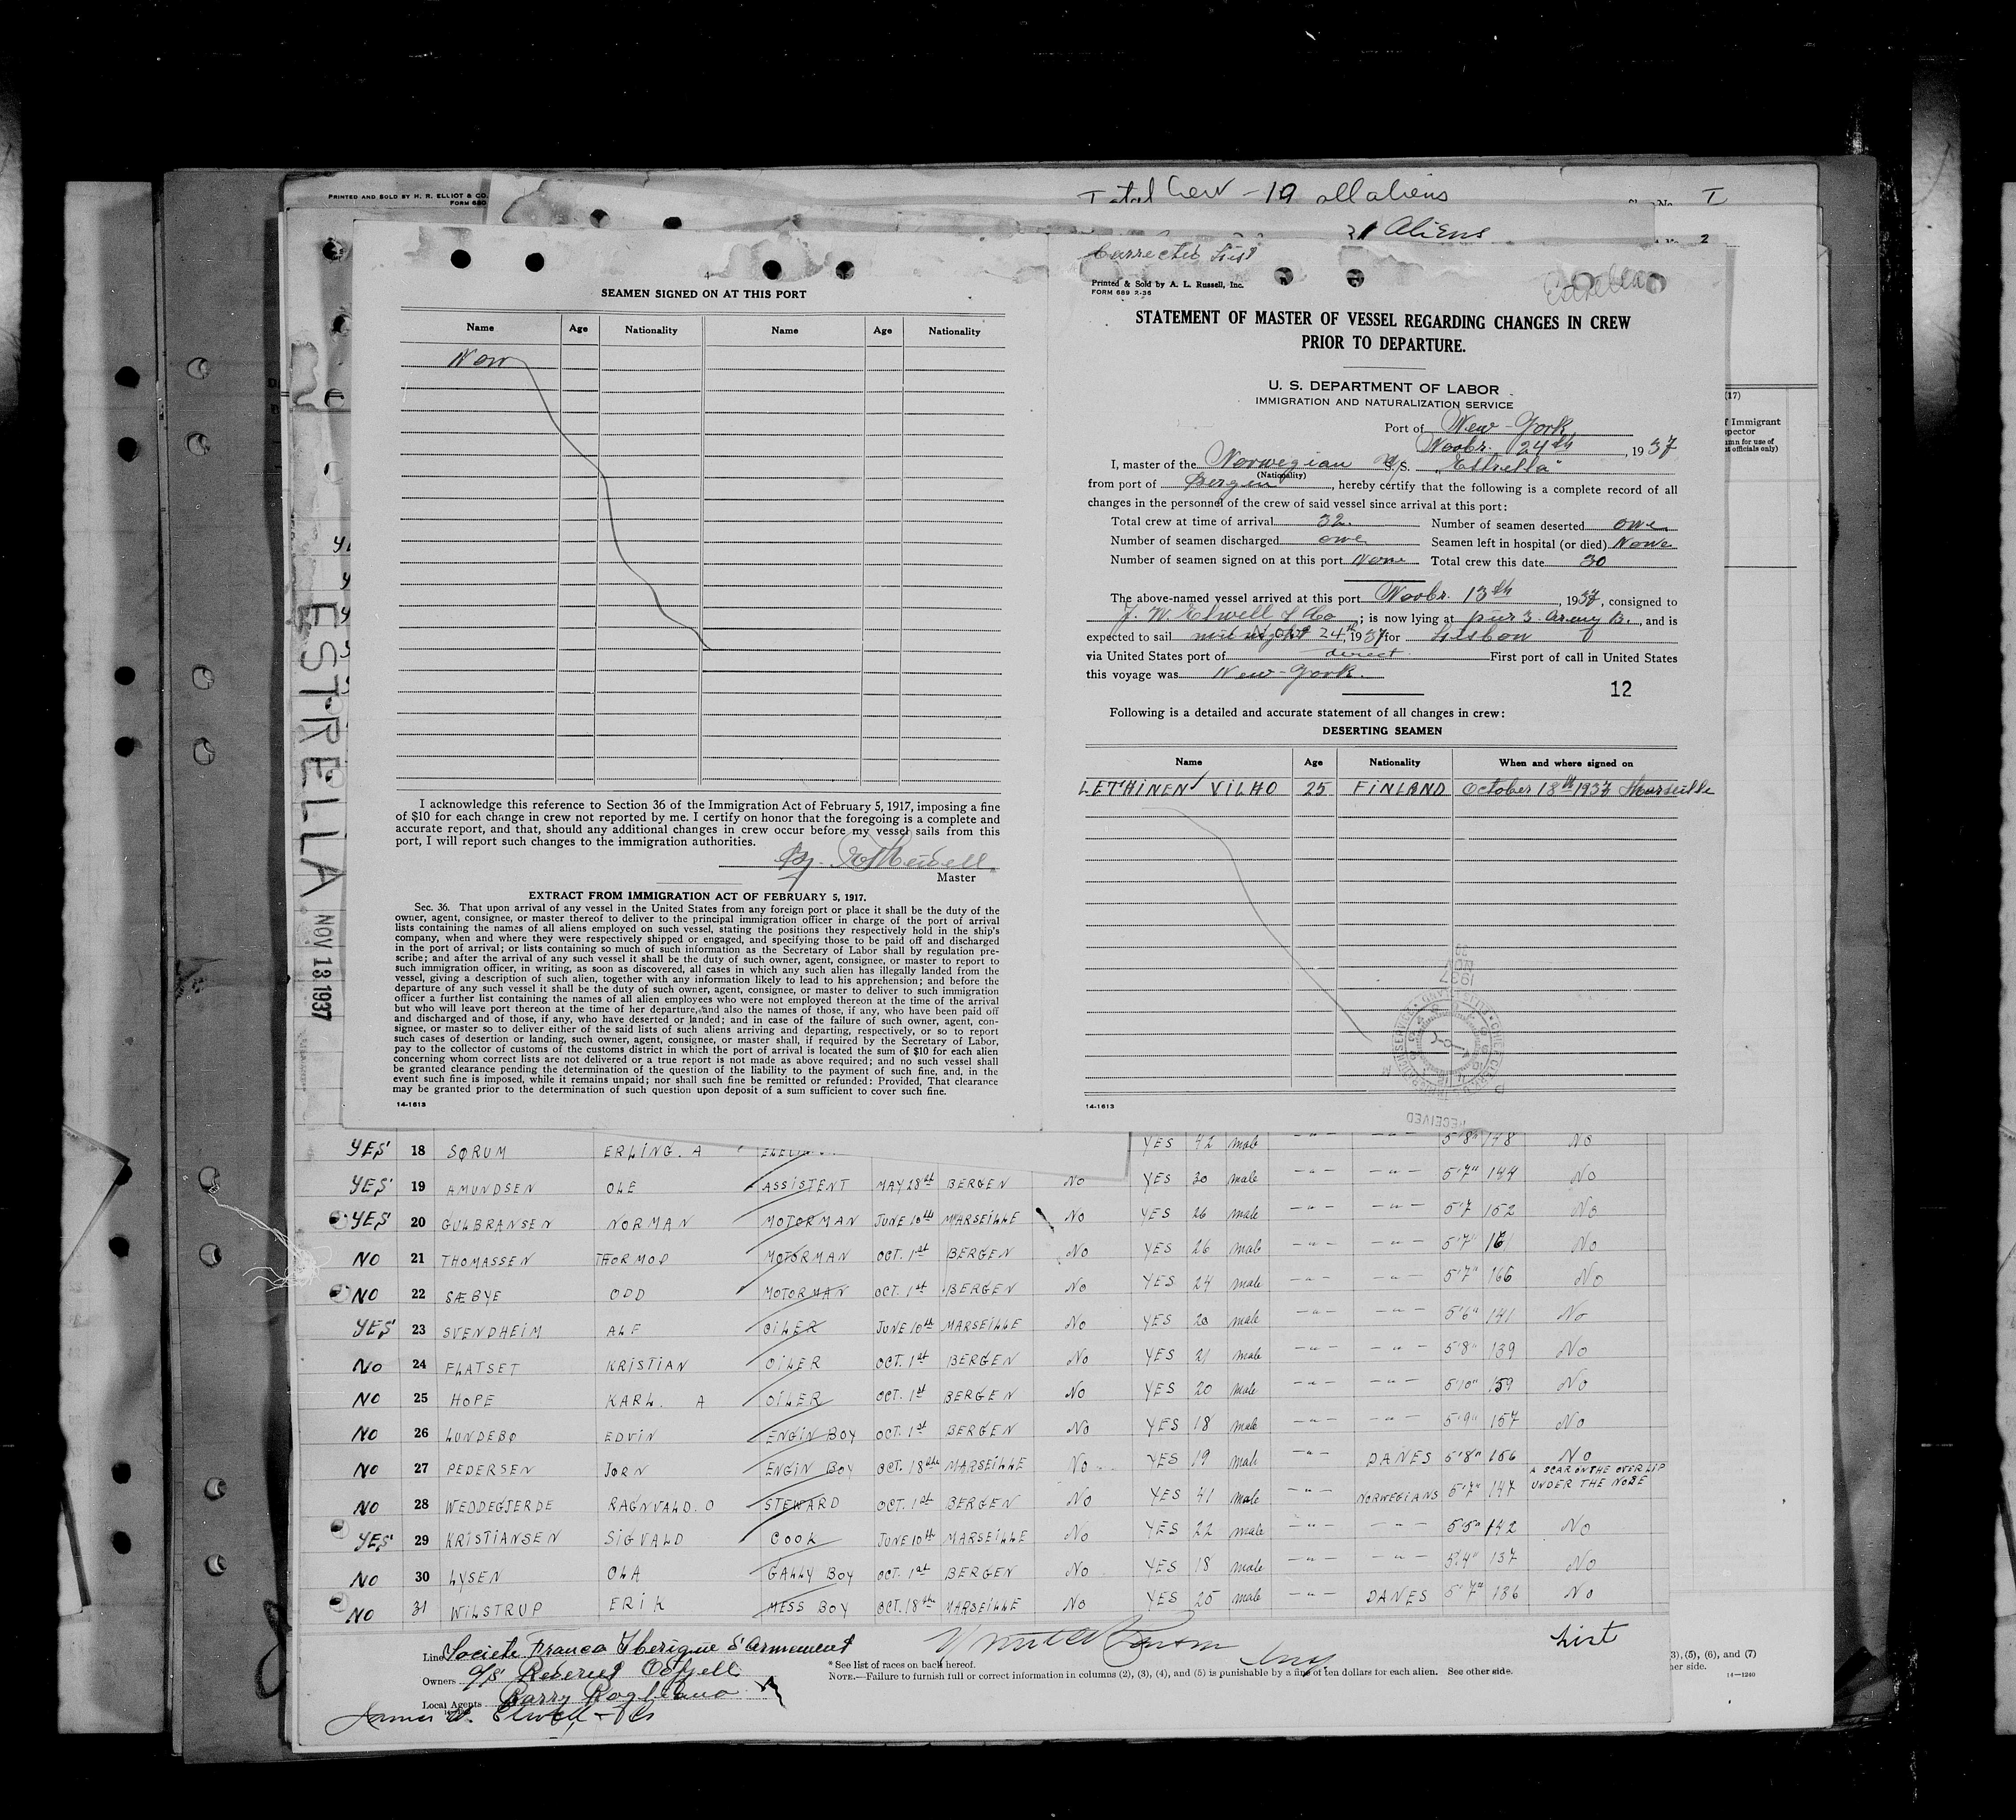 PRINTED AND SOLD BY H. R. ELLIOT & CO.
FORM 680
Total Crew - 19 all aliens
I
31 Aliens
2
SEAMEN SIGNED ON AT THIS PORT
Name Age Nationality Name Age Nationality
Non
I acknowledge this reference to Section 36 of the Immigration Act of February 5, 1917, imposing a fine
of $10 for each change in crew not reported by me. I certify on honor that the foregoing is a complete and
accurate report, and that, should any additional changes in crew occur before my vessel sails from this
port, I will report such changes to the immigration authorities.
Master
EXTRACT FROM IMMIGRATION ACT OF FEBRUARY 5, 1917.
Sec. 36. That upon arrival of any vessel in the United States from any foreign port or place it shall be the duty of the
owner, agent, consignee, or master thereof to deliver to the principal immigration officer in charge of the port of arrival
lists containing the names of all aliens employed on such vessel, stating the positions they respectively hold in the ship's
company, when and where they were respectively shipped or engaged, and specifying those to be paid off and discharged
in the port of arrival; or lists containing so much of such information as the Secretary of Labor shall by regulation pre-
scribe; and after the arrival of any such vessel it shall be the duty of such owner, agent, consignee, or master to report to
such immigration officer, in writing, as soon as discovered, all cases in which any such alien has illegally landed from the
vessel, giving a description of such alien, together with any information likely to lead to his apprehension; and before the
departure of any such vessel it shall be the duty of such owner, agent, consignee, or master to deliver to such immigration
officer a further list containing the names of all alien employees who were not employed thereon at the time of the arrival
but who will leave port thereon at the time of her departure, and also the names of those, if any, who have been paid off
and discharged and of those, if any, who have deserted or landed; and in case of the failure of such owner, agent, con-
signee, or master so to deliver either of the said lists of such aliens arriving and departing, respectively, or so to report
such cases of desertion or landing, such owner, agent, consignee, or master shall, if required by the Secretary of Labor,
pay to the collector of customs of the customs district in which the port of arrival is located the sum of $10 for each alien
concerning whom correct lists are not delivered or a true report is not made as above required; and no such vessel shall
be granted clearance pending the determination of the question of the liability to the payment of such fine, and, in the
event such fine is imposed, while it remains unpaid; nor shall such fine be remitted or refunded: Provided, That clearance
may be granted prior to the determination of such question upon deposit of a sum sufficient to cover such fine.
14-1613
Corrected List
Printed & Sold by A. L. Russell, Inc.
FORM 689 2-36
STATEMENT OF MASTER OF VESSEL REGARDING CHANGES IN CREW
PRIOR TO DEPARTURE.
U. S. DEPARTMENT OF LABOR
IMMIGRATION AND NATURALIZATION SERVICE
Port of New-York
Novbr. 24th, 1937
I, master of the Norwegian S. "Estrella"
(Nationality)
from port of Bergen, hereby certify that the following is a complete record of all
changes in the personnel of the crew of said vessel since arrival at this port:
Total crew at time of arrival 32. Number of seamen deserted one
Number of seamen discharged one Seamen left in hospital (or died) None
Number of seamen signed on at this port None Total crew this date 30
The above-named vessel arrived at this port Novbr. 13th, 1937, consigned to
J. W. Elwell & Co; is now lying at pier 3. Army B., and is
expected to sail midnight 24th, 1937 for Lisbon
via United States port of direct. First port of call in United States
this voyage was New-York.
12
Following is a detailed and accurate statement of all changes in crew:
DESERTING SEAMEN
Name Age Nationality When and where signed on
LETHINEN VILHO 25 FINLAND October 18th 1937 Marseille
RECEIVED
14-1613
(17)
f Immigrant
spector
mn for use of
t officials only)
ESTRELLA NOV 13 1937
YES 18 SØRUM ERLING. A YES 42 male -"- -"- 5'8" 148 No
YES 19 AMUNDSEN OLE ASSISTENT MAY 28th BERGEN No YES 30 male -"- -"- 5'7" 144 No
YES 20 GULBRANSEN NORMAN MOTORMAN JUNE 10th MARSEILLE No YES 26 male -"- -"- 5'7 152 No
NO 21 THOMASSEN THORMOD MOTORMAN OCT. 1st BERGEN No YES 26 male -"- -"- 5'7" 161 No
NO 22 SÆBYE ODD MOTORMAN OCT. 1st BERGEN No YES 24 male -"- -"- 5'7" 166 No
YES 23 SVENDHEIM ALF OILER JUNE 10th MARSEILLE No YES 20 male -"- -"- 5'6" 141 No
NO 24 FLATSET KRISTIAN OILER OCT. 1st BERGEN No YES 21 male -"- -"- 5'8" 139 No
NO 25 HOPE KARL. A OILER OCT. 1st BERGEN No YES 20 male -"- -"- 5'10" 159 No
NO 26 LUNDEBØ EDVIN ENGIN BOY OCT. 1st BERGEN No YES 18 male -"- -"- 5'9" 157 No
NO 27 PEDERSEN JØRN ENGIN BOY OCT. 18th MARSEILLE No YES 19 male -"- DANES 5'8" 166 No
NO 28 WEDDEGJERDE RAGNVALD. O STEWARD OCT. 1st BERGEN No YES 41 male -"- NORWEGIANS 5'7" 147 A SCAR ON THE OVER LIP UNDER THE NOSE
YES 29 KRISTIANSEN SIGVALD COOK JUNE 10th MARSEILLE No YES 22 male -"- -"- 5'5" 142 No
NO 30 LYSEN OLA GALLY BOY OCT. 1st BERGEN No YES 18 male -"- -"- 5'4" 137 No
NO 31 WILSTRUP ERIK MESS BOY OCT. 18th MARSEILLE No YES 25 male -"- DANES 5'7" 136 No
Line Societe Franco Iberique d'Armement
Owners A/S Rederiet Odfjell
Local Agents Barry Rogliano
James W. Elwell & Co
List
* See list of races on back hereof.
NOTE.—Failure to furnish full or correct information in columns (2), (3), (4), and (5) is punishable by a fine of ten dollars for each alien. See other side.
3), (5), (6), and (7)
her side.
14-1240